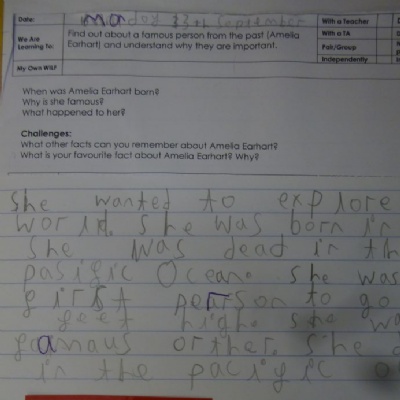 Date: monday 23th September
With a Teacher
We Are Learning to: Find out about a famous person from the past (Amelia Earhart) and understand why they are important.
With a TA
Pair/Group
Independently
My Own WILF
When was Amelia Earhart born?
Why is she famous?
What happened to her?
Challenges:
What other facts can you remember about Amelia Earhart?
What is your favourite fact about Amelia Earhart? Why?
She wanted to explore
world. she was born in
she was dead in the
pasific Ocean. she was
first person to go
feet high. she
famaus orther. she
in the pacific